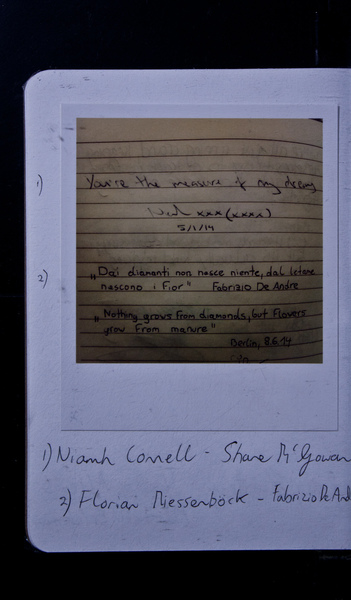 1)
You're the measure of my dreams
xxx (xxxx)
5/1/14
2)
„Dai diamanti non nasce niente, dal letame
nascono i Fior" Fabrizio De Andre
„Nothing grows from diamonds, but Flowers
grow From manure"
Berlin, 8.6.14
1) Niamh Connell - Shane M'Gowan
2) Florian Riessenböck - Fabrizio De And